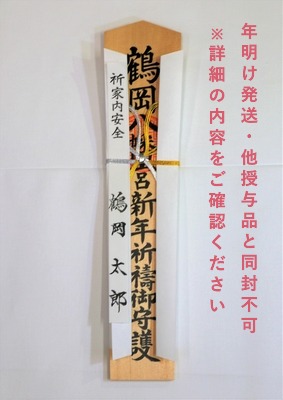 年明け発送・他授与品と同封不可
※詳細の内容をご確認ください
鶴岡八幡宮新年祈禱御守護
祈家内安全
鶴岡 太郎